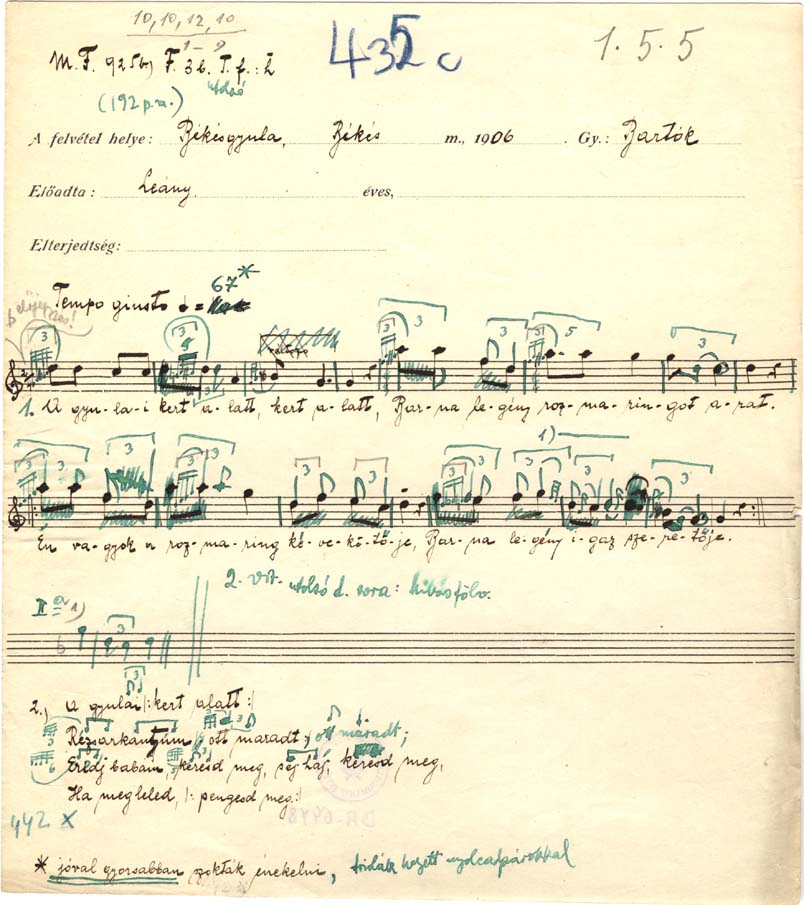 10, 10, 12, 10
1-9
435 c
1.5.5
M.F. 925b) F. 3b. T. f.: 2
utolsó
(192 p.a.)
A felvétel helye: Békésgyula, Békés m., 1906. Gy.: Bartók
Előadta: Leány. éves,
Elterjedtség:
Tempo giusto = 67*
előjegyzés!
3 3 3 3 5 3
1. A gyu-la-i kert a-latt, kert a-latt, Bar-na le-gény roz-ma-rin-got a-rat.
1)
3 3 3 3 3 3 3 3 3 3 3 3
Én va-gyok a roz-ma-ring ké-ve-kö-tő-je, Bar-na le-gény i-gaz sze-re-tője.
2. vsz. utolsó d. sora: hibás fölv.
II a 1)
3
3
2., A gyulai |: kert alatt :|
Rézsarkantyúm ott maradt, ott maradt;
Eredj babám, keresd meg, sej haj, keresd meg,
Ha megleled, |: pengesd meg. :|
442 X
* jóval gyorsabban szokták énekelni, triolák helyett nyolcadpárokkal